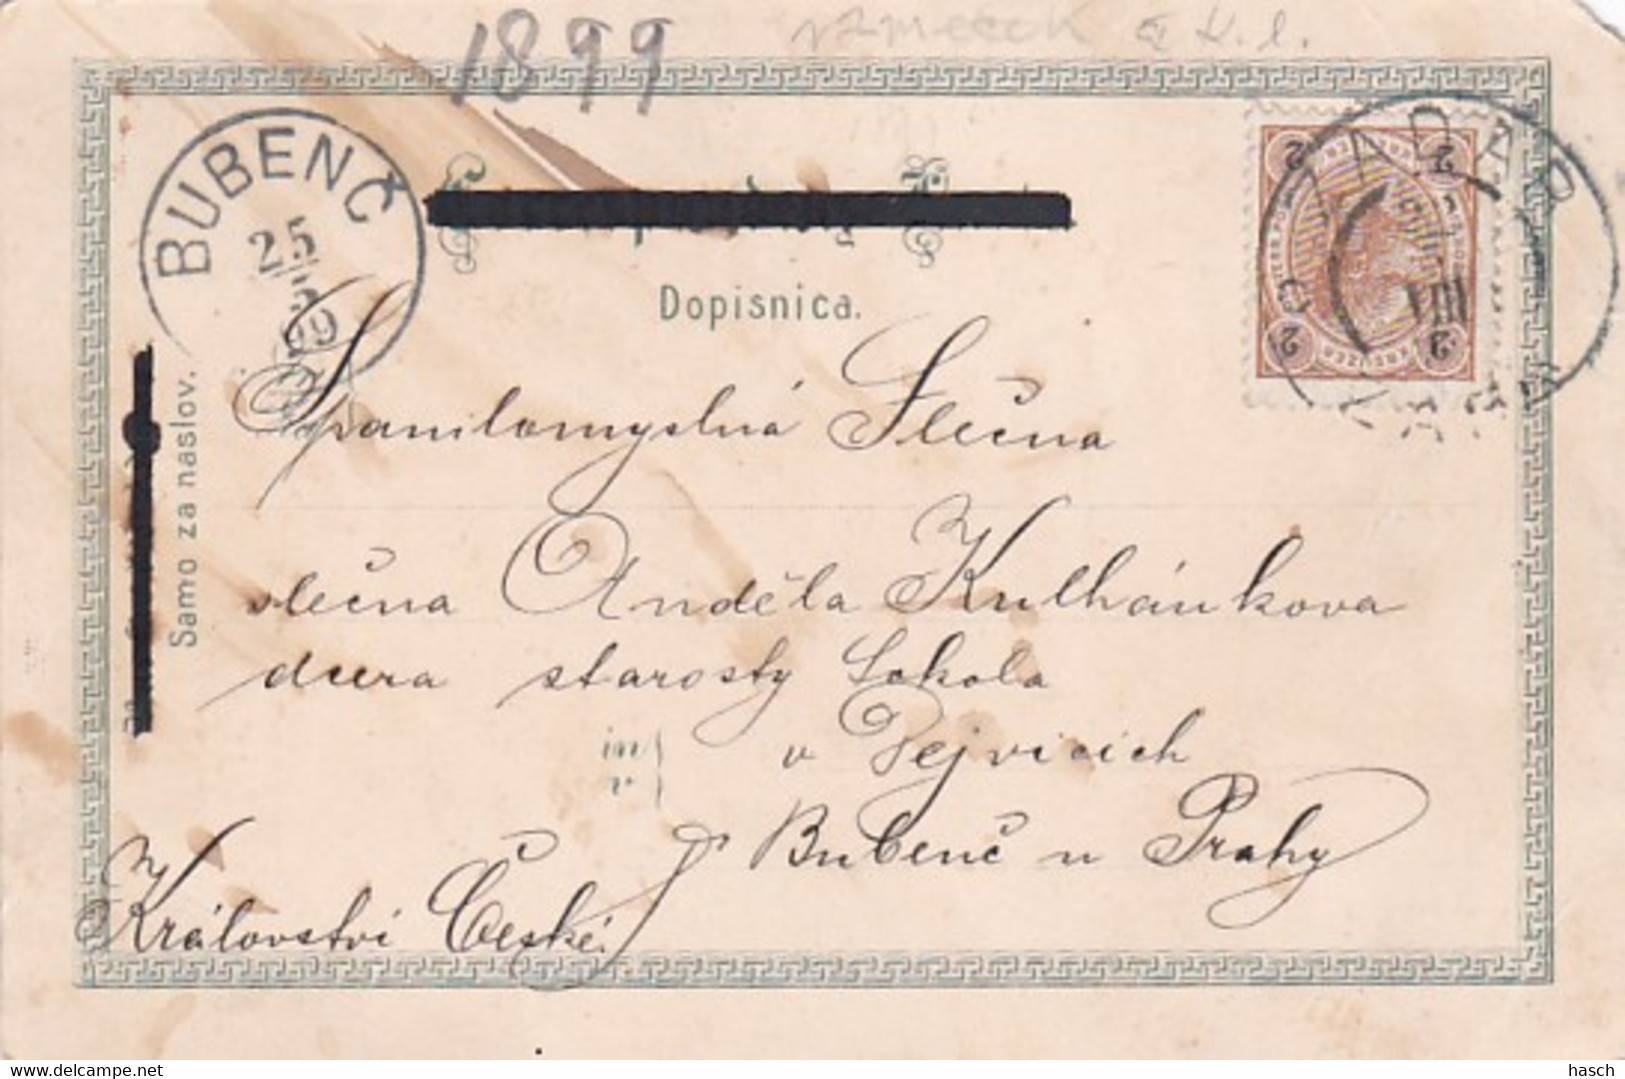 1899
BUBENČ
25
99
Dopisnica.
Samo za naslov.
Spanilomyslná Slečna
slečna Anděla Kulhánkova
dcera starosty Sokola
v Dejvicích
Bubenč u Prahy
Království České.
ZADAR
VIII
2 2
2 2
hasch